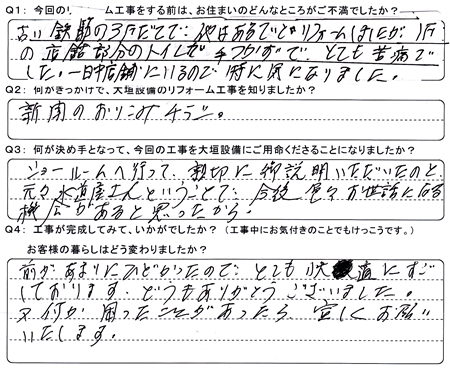 Q1: 今回のリ　　ーム工事をする前は、お住まいのどんなところがご不満でしたか？
古い鉄筋の3F建てで、他はあるていどリフォームしたが、1F
の店舗部分のトイレが手つかずで、とても苦痛で
した。一日中店舗にいるので特に気になりました。
Q2: 何がきっかけで、大垣設備のリフォーム工事を知りましたか？
新聞のおりこみチラシ。
Q3: 何が決め手となって、今回の工事を大垣設備にご用命くださることになりましたか？
ショールームへ行って、親切に御説明いただいたのと、
元々水道屋さんということで、今後色々お世話になる
機会があると思ったから。
Q4: 工事が完成してみて、いかがでしたか？（工事中にお気付きのことでもけっこうです。）
お客様の暮らしはどう変わりましたか？
前があまりにひどかったので、とても快適にすご
しております。どうもありがとうございました。
又何か困ったことがあったら宜しくお願
いたします。